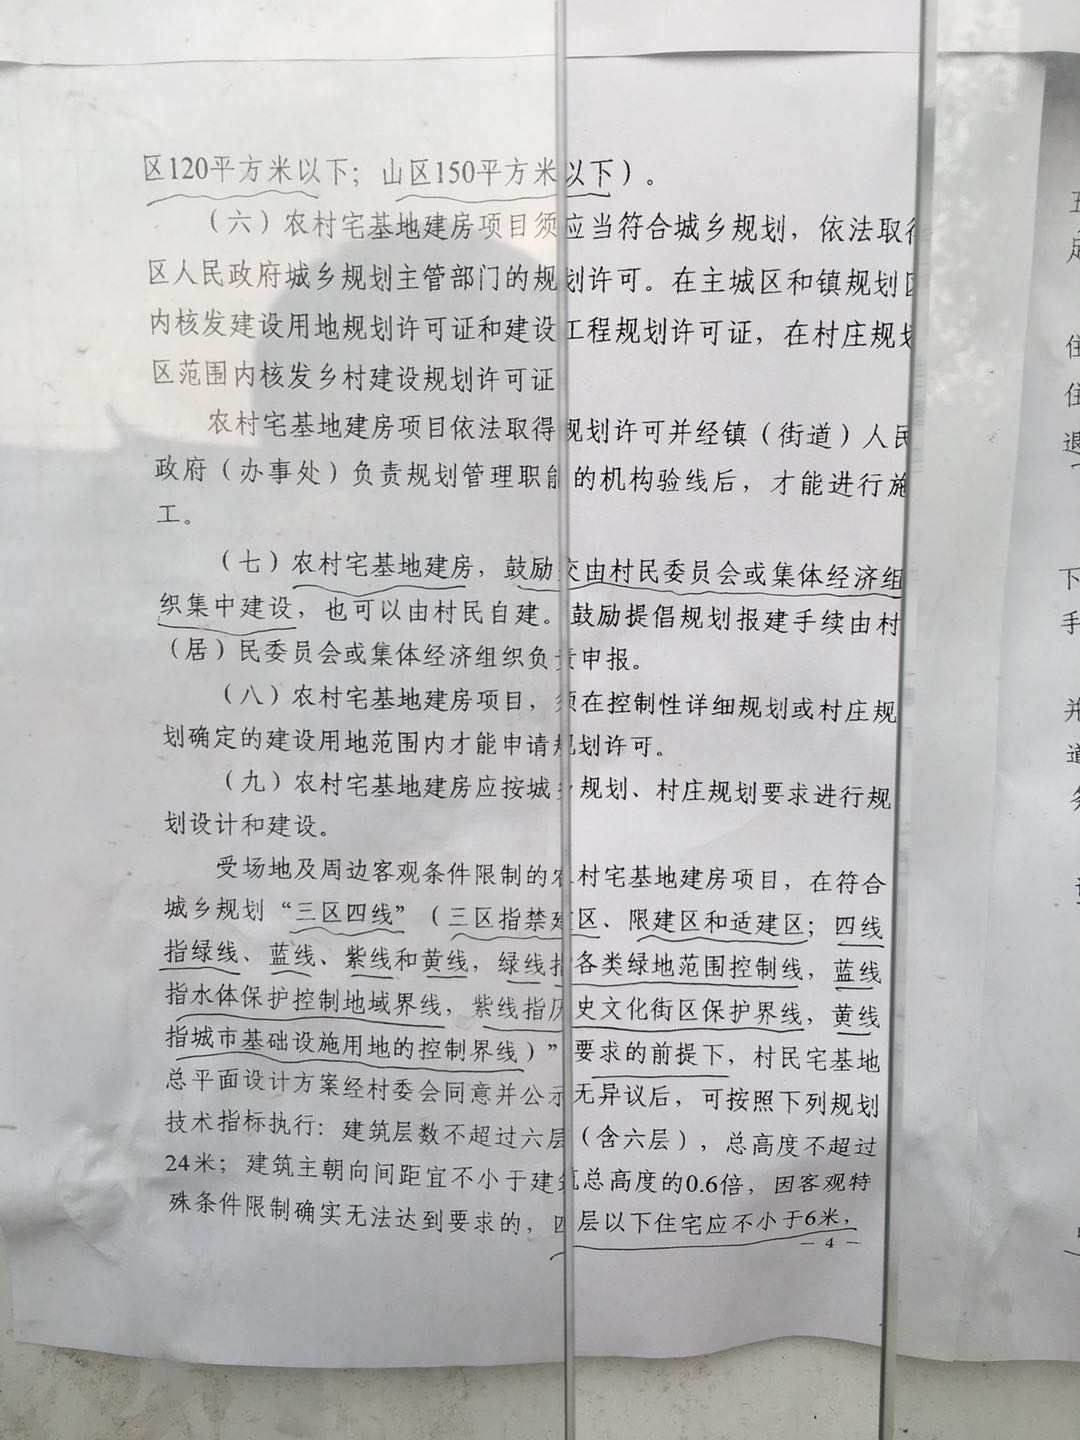 区120平方米以下；山区150平方米以下）。
（六）农村宅基地建房项目须应当符合城乡规划，依法取得
区人民政府城乡规划主管部门的规划许可。在主城区和镇规划区
内核发建设用地规划许可证和建设工程规划许可证，在村庄规划
区范围内核发乡村建设规划许可证
农村宅基地建房项目依法取得规划许可并经镇（街道）人民
政府（办事处）负责规划管理职能的机构验线后，才能进行施
工。
（七）农村宅基地建房，鼓励交由村民委员会或集体经济组
织集中建设，也可以由村民自建。鼓励提倡规划报建手续由村
（居）民委员会或集体经济组织负责申报。
（八）农村宅基地建房项目，须在控制性详细规划或村庄规
划确定的建设用地范围内才能申请规划许可。
（九）农村宅基地建房应按城乡规划、村庄规划要求进行规
划设计和建设。
受场地及周边客观条件限制的农村宅基地建房项目，在符合
城乡规划“三区四线”（三区指禁建区、限建区和适建区；四线
指绿线、蓝线、紫线和黄线，绿线指各类绿地范围控制线，蓝线
指水体保护控制地域界线，紫线指历史文化街区保护界线，黄线
指城市基础设施用地的控制界线）”要求的前提下，村民宅基地
总平面设计方案经村委会同意并公示无异议后，可按照下列规划
技术指标执行：建筑层数不超过六层（含六层），总高度不超过
24米；建筑主朝向间距宜不小于建筑总高度的0.6倍，因客观特
殊条件限制确实无法达到要求的，四层以下住宅应不小于6米，
— 4 —
住
住
退
下
手
并
道